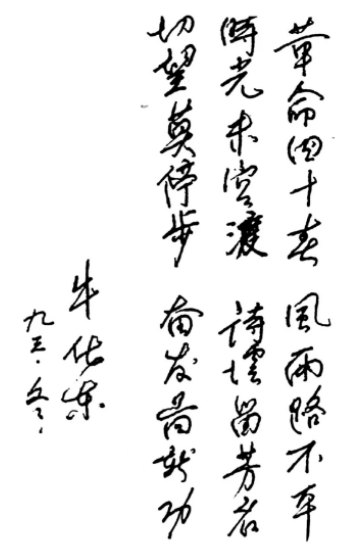 革命四十春 風雨路不平
時光未空渡 詩壇留芳名
切望莫停步 奋发普新功
牛化东
九三.冬.